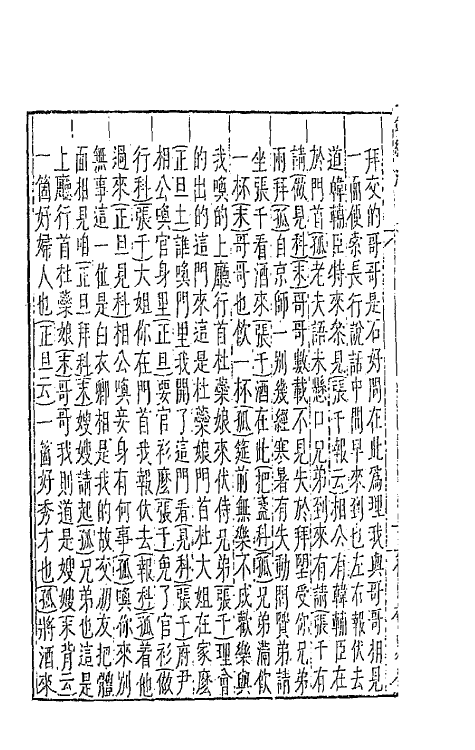 拜交的哥哥是石好問在此為理我與哥哥相見
一面便索長行說話中間早來到也左右報伏去
道韓輔臣特來參見張千報云相公有韓輔臣在
於門首孤老夫語未懸口兄弟到來有請張千有
請做見科末哥哥數載不見失於拜望受你兄弟
兩拜孤自京師一別幾經寒暑有失動問賢弟請
坐張千看酒來張千酒在此把盞科孤兄弟滿飲
一杯末哥哥也飲一杯孤筵前無樂不成歡樂與
我喚的上廳行首杜蘂娘來伏侍兄弟張千理會
的出的這門來這是杜蘂娘門首杜大姐在家麼
正旦上誰喚門里我開了這門看見科張千府尹
相公喚官身里正旦要官衫麼張千免了官衫做
行科張千大姐你在門首我報伏去報科孤着他
過來正旦見科相公喚妾身有何事孤喚你來別
無事這一位是白衣卿相是我的故交朋友把體
面相見咱正旦拜科末嫂嫂請起孤兄弟也這是
上廳行首杜蘂娘末哥哥我則道是嫂嫂末背云
一箇好婦人也正旦云一箇好秀才也孤將酒來